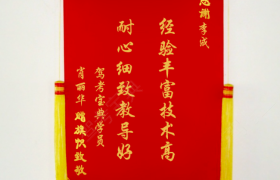 感谢李成
经验丰富技术高
耐心细致教导好
驾考宝典学员
肖丽华赠旗织致敬